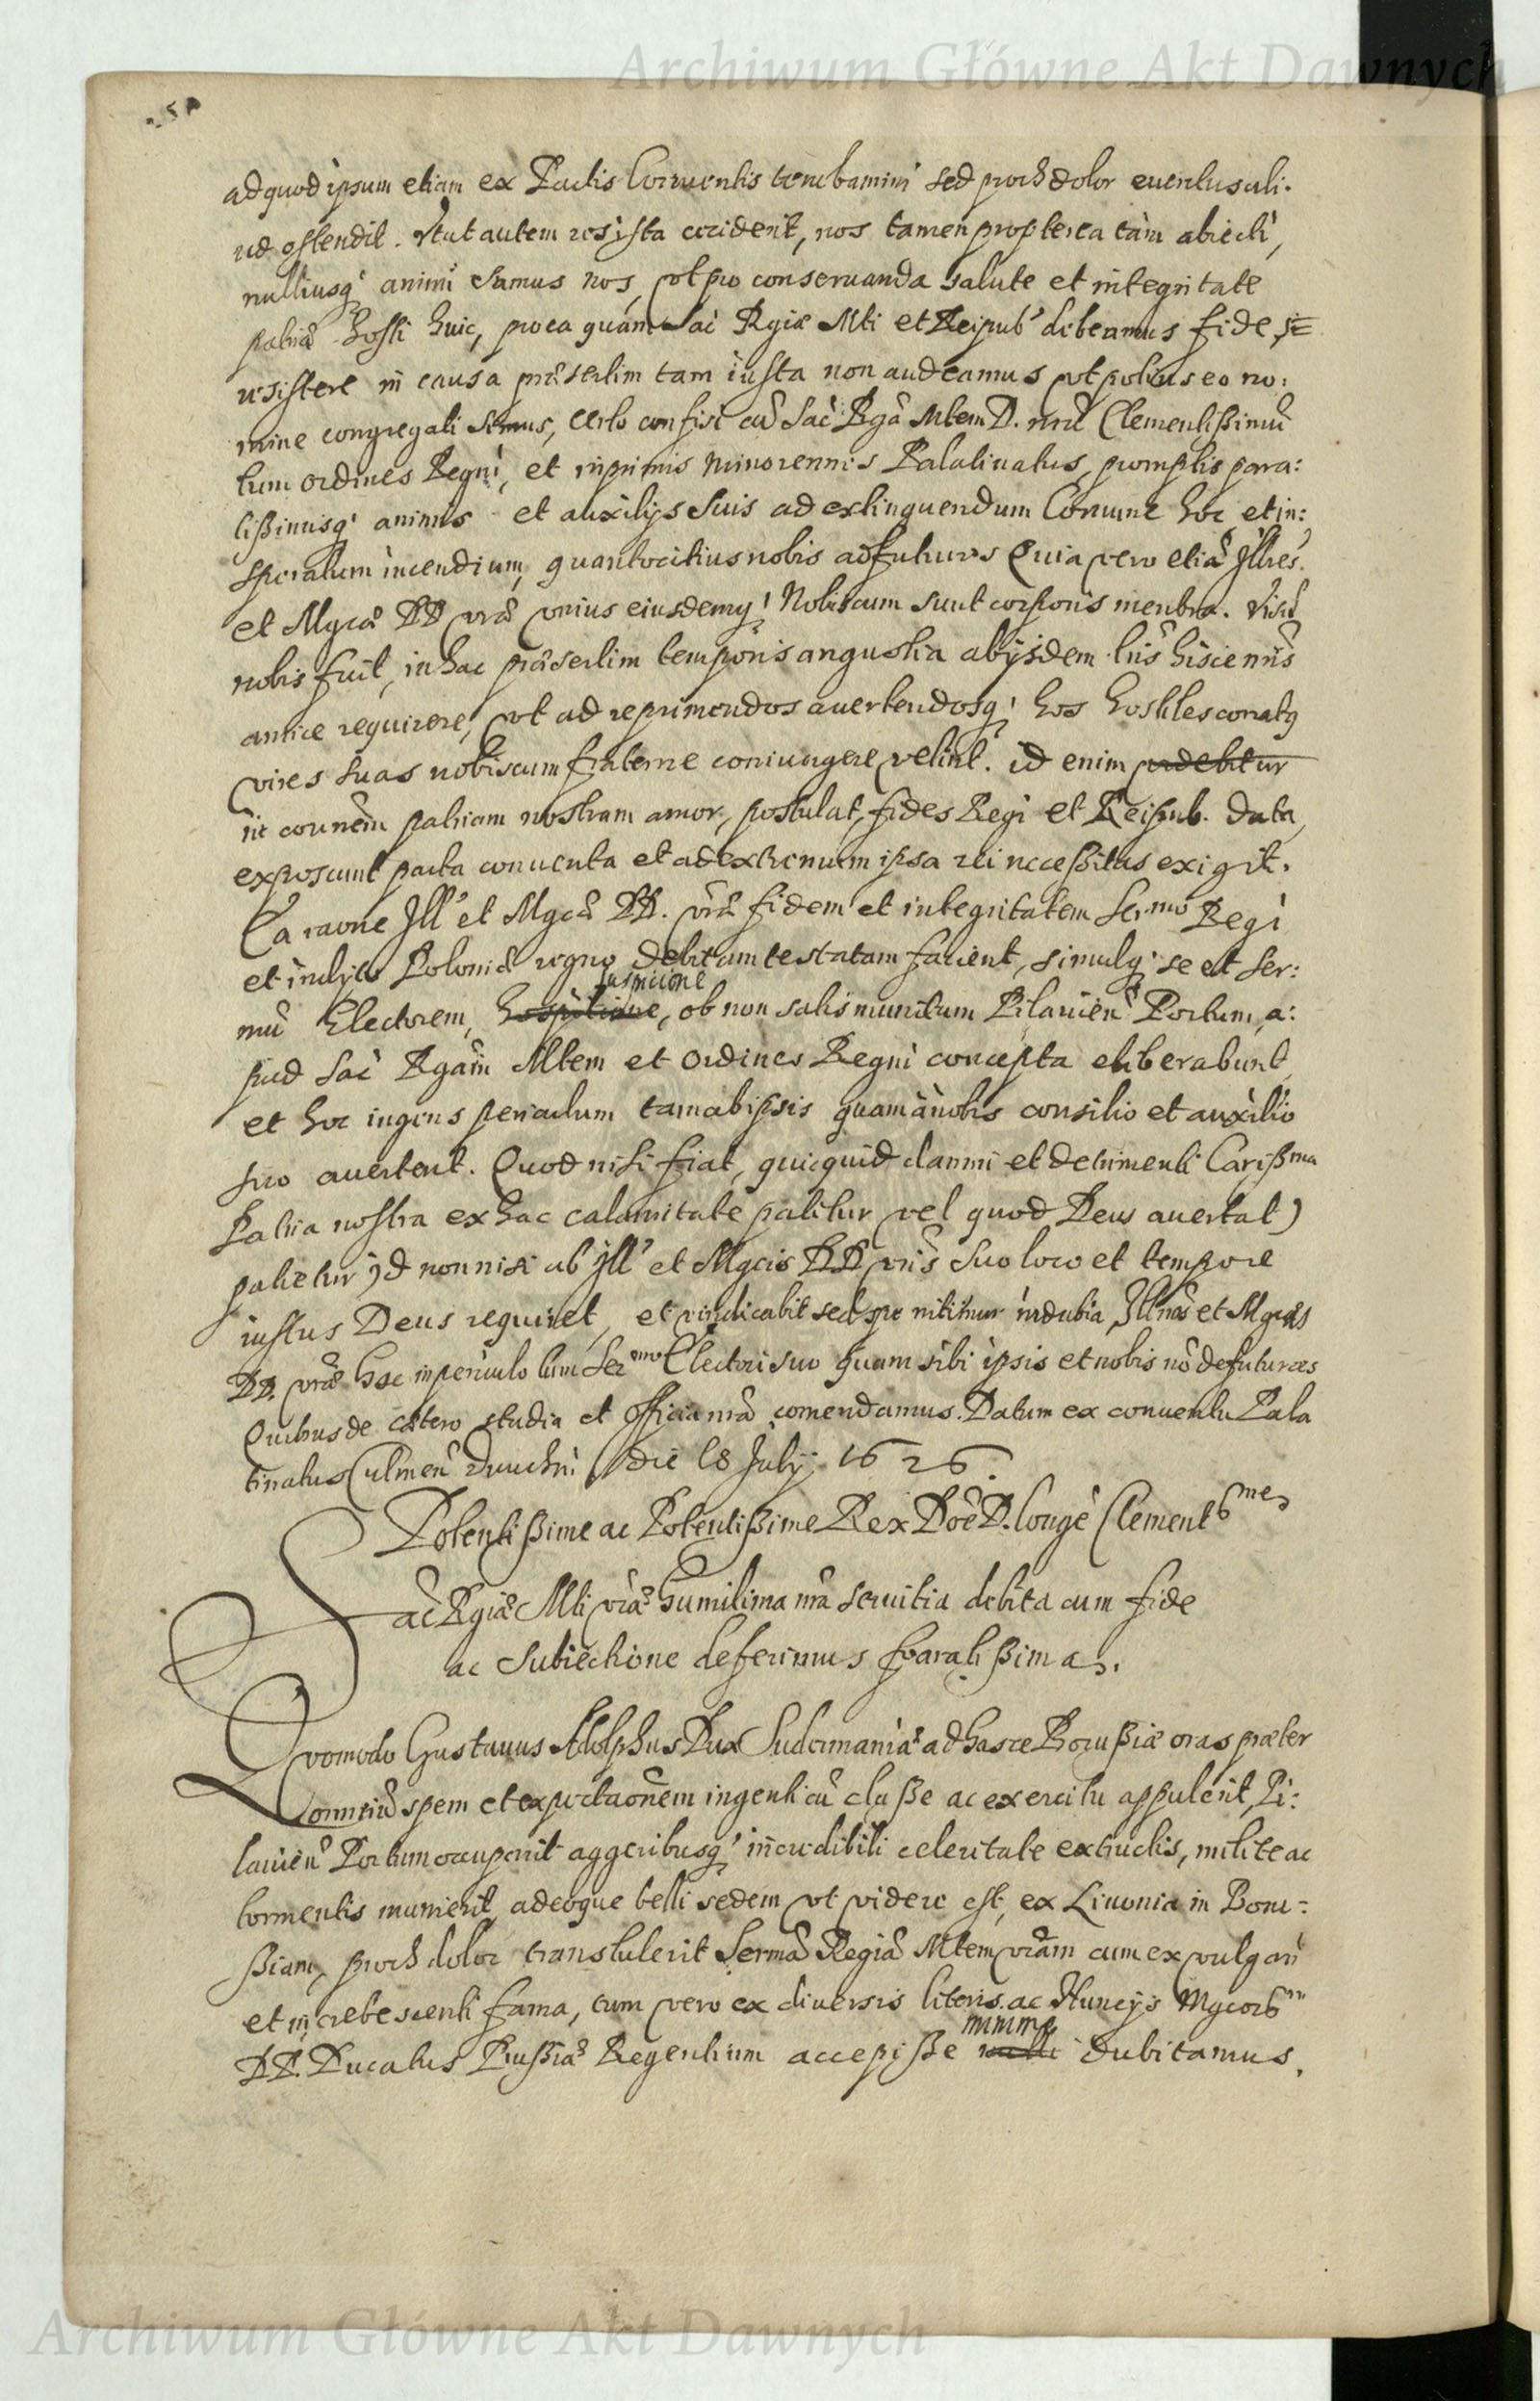 Archiwum Główne Akt Dawnych
ad quod ipsum etiam ex Pactis Conventis tenebamini sed proh dolor eventus ali:
ud ostendit. Vtut autem res ista ceciderit, nos tamen propterea tàm abiecti,
nulliusq; animi samus nos, vt pro conseruanda salute et integritate
patriæ hosti huic, pro ea quam Sac Rgiæ Mti et Reipub' debeamus fide,
resistere in causa præsertim tam iusta non audeamus vt potius eo no:
mine congregati simus, certo confisi cũ Sac Rgã Mtem D. nrũ Clementißimũ
tum ordines Regni, et inprimis minorennis Palatinatus, promptis para:
tißimisq; animis et auxilijs suis ad extinguendum Comune hoc et in:
speratum incendium, quantocitius nobis adfuturos Quia vero etiã Jllres.
et Mgcæ DD vræ vnius eiusdemq; Nobiscum sunt corporis membra. Visũ
nobis fuit, in hac præsertim temporis angustia ab ijsdem lris hisce nris
amice requirere, vt ad reprimendos auertendosq; hos hostiles conatus
vires suas nobiscum fraterne coniungere velint. id enim videbitur
in comunem patriam nostram amor, postulat, fides Regi et Reipub. data,
exposcunt pacta conuenta et ad extremum ipsa rei neceßitas exigit.
Ea raone Jll' et Mgcæ DD. vræ fidem et integritatem Sermo Regi
et inclyto Poloniæ regno debitam testatam facient, simulq; se et Ser:
suspicione
mũ Electorem, hospitione, ob non satis munitum Pilauien' Portum, a:
pud Sac Rgam Mtem et Ordines Regni concepta eliberabunt
et hoc ingens periculum tam ab ipsis quam à nobis consilio et auxilio
suo auertent. Quod nisi fiat, quicquid damni et detrimenti Carißma
Patria nostra ex hac calamitate patitur vel quod Deus auertat)
patietur id non nisi ab Jll' et Mgcis DD vris suo loco et tempore
iustus Deus requiret, et vindicabit sed spe nitimur indubia, Jllmas et Mgcas
DD. vras hoc in periculo tum Sermo Electori suo quam sibi ipsis et nobis nõ defuturas
Quibus de cætero studia et officia nra comendamus. Datum ex conuentu Pala
tinatus Culmen' die 18 July 1626.
Potentißime ac Potentißime Rex Doe D. longè Clementßme
Sac Rgiæ Mti vræ humilima nra seruitia debita cum fide
ac subiectione deferimus paratißima.
Quomodo Gustauus Adolphus Dux Sudermaniæ ad hasce Borußiæ oras præter
omnium spem et expectaonem ingenti cũ claße ac exercitu appulerit, Pi:
lauien' Portum occuparit aggeribusq; incredibili celeritate extructis, milite ac
tormentis munierit, adeoque belli sedem vt videre est, ex Liuonia in Boru:
ßiam, proh dolor transtulerit Sermã Regiã Mtem vram cum ex vulgari
et increbescenti fama, tum vero ex diuersis literis ac Nuncijs Mgcor
minime
DD. Ducatus Prußiæ Regentium accepiße nulli dubitamus.
Archiwum Główne Akt Dawnych